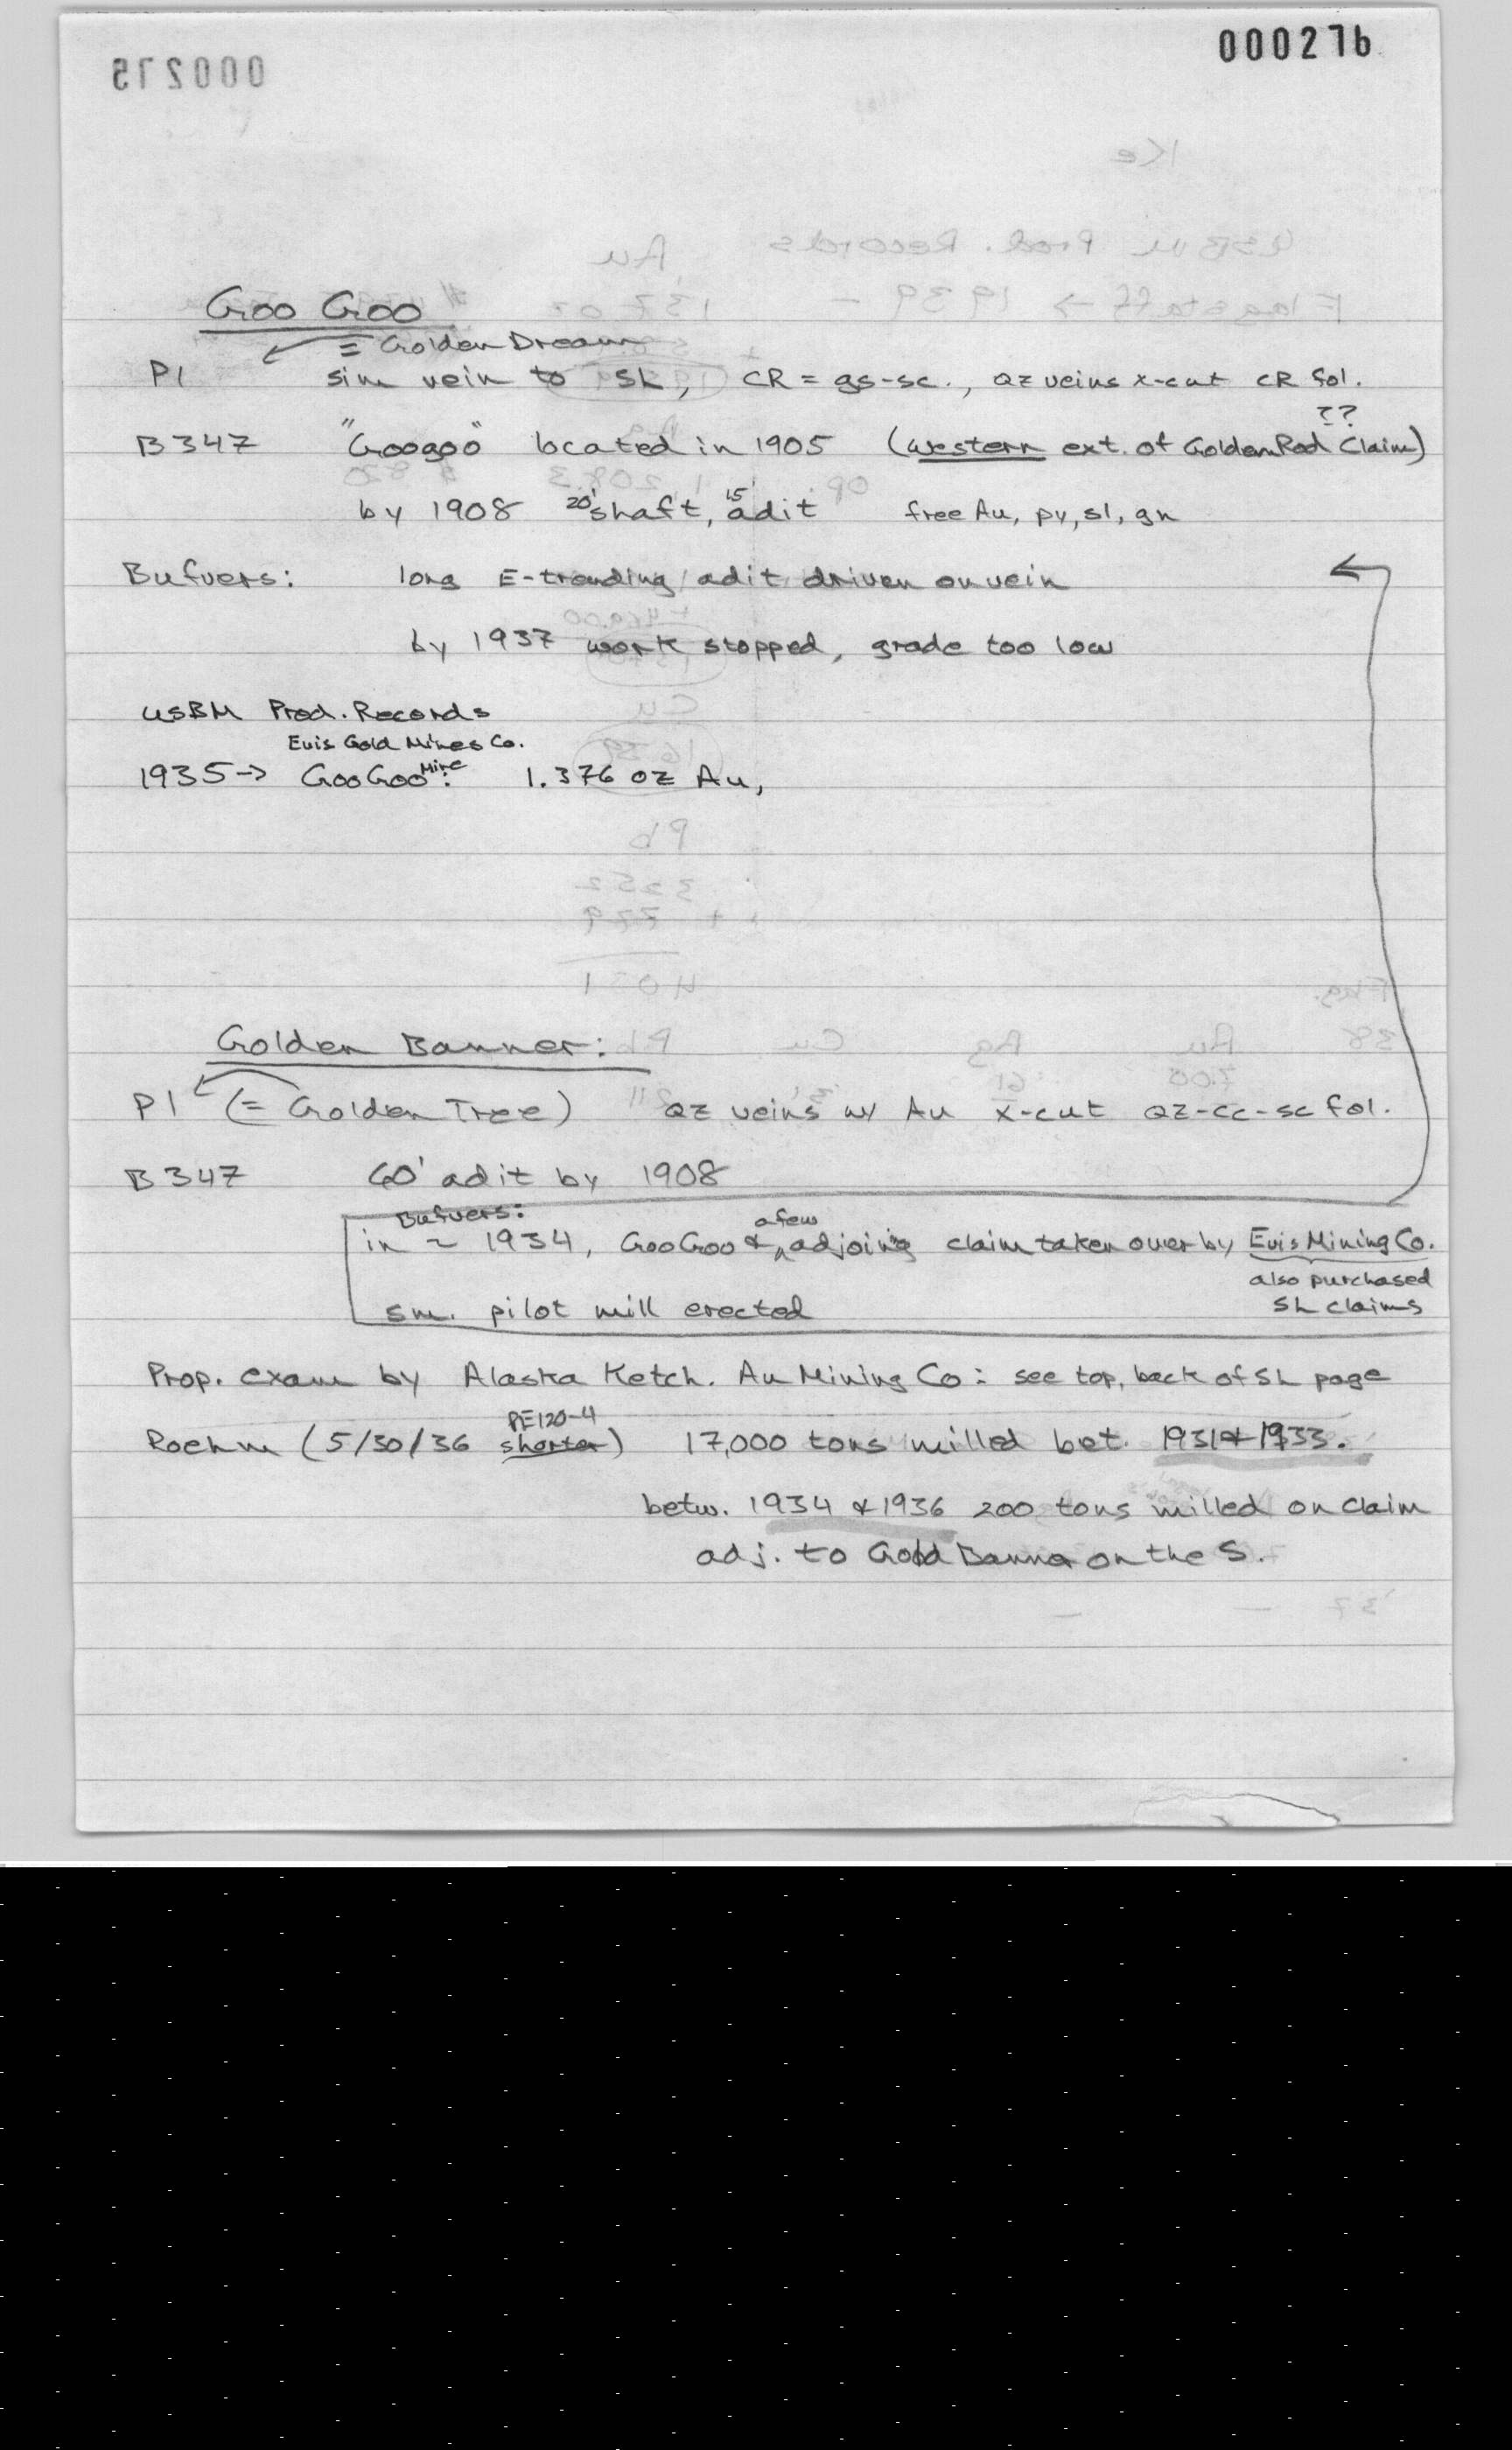 000276
Goo Goo
= Golden Dream
P1 sim vein to SL, CR = gs-sc., qz veins x-cut CR fol.
??
B347 "Googoo" located in 1905 (western ext. of Golden Rod Claim)
by 1908 20' shaft, 15' adit free Au, py, sl, gn
Bufvers: long E-trending adit driven on vein
by 1937 work stopped, grade too low
USBM Prod. Records
Evis Gold Mines Co.
1935 → GooGoo Mine: 1.376 oz Au,
Golden Banner:
P1 (= Golden Tree) qz veins w/ Au x-cut qz-cc-sc fol.
B347 60' adit by 1908
Bufvers:
in ~ 1934, GooGoo & a few adjoining claim taken over by Evis Mining Co.
also purchased
SL claims
sm. pilot mill erected
Prop. exam by Alaska Ketch. Au Mining Co: see top, back of SL page
PE120-4
Roehm (5/30/36 shorter) 17,000 tons milled bet. 1931 & 1933.
betw. 1934 & 1936 200 tons milled on claim
adj. to Gold Banner on the S.